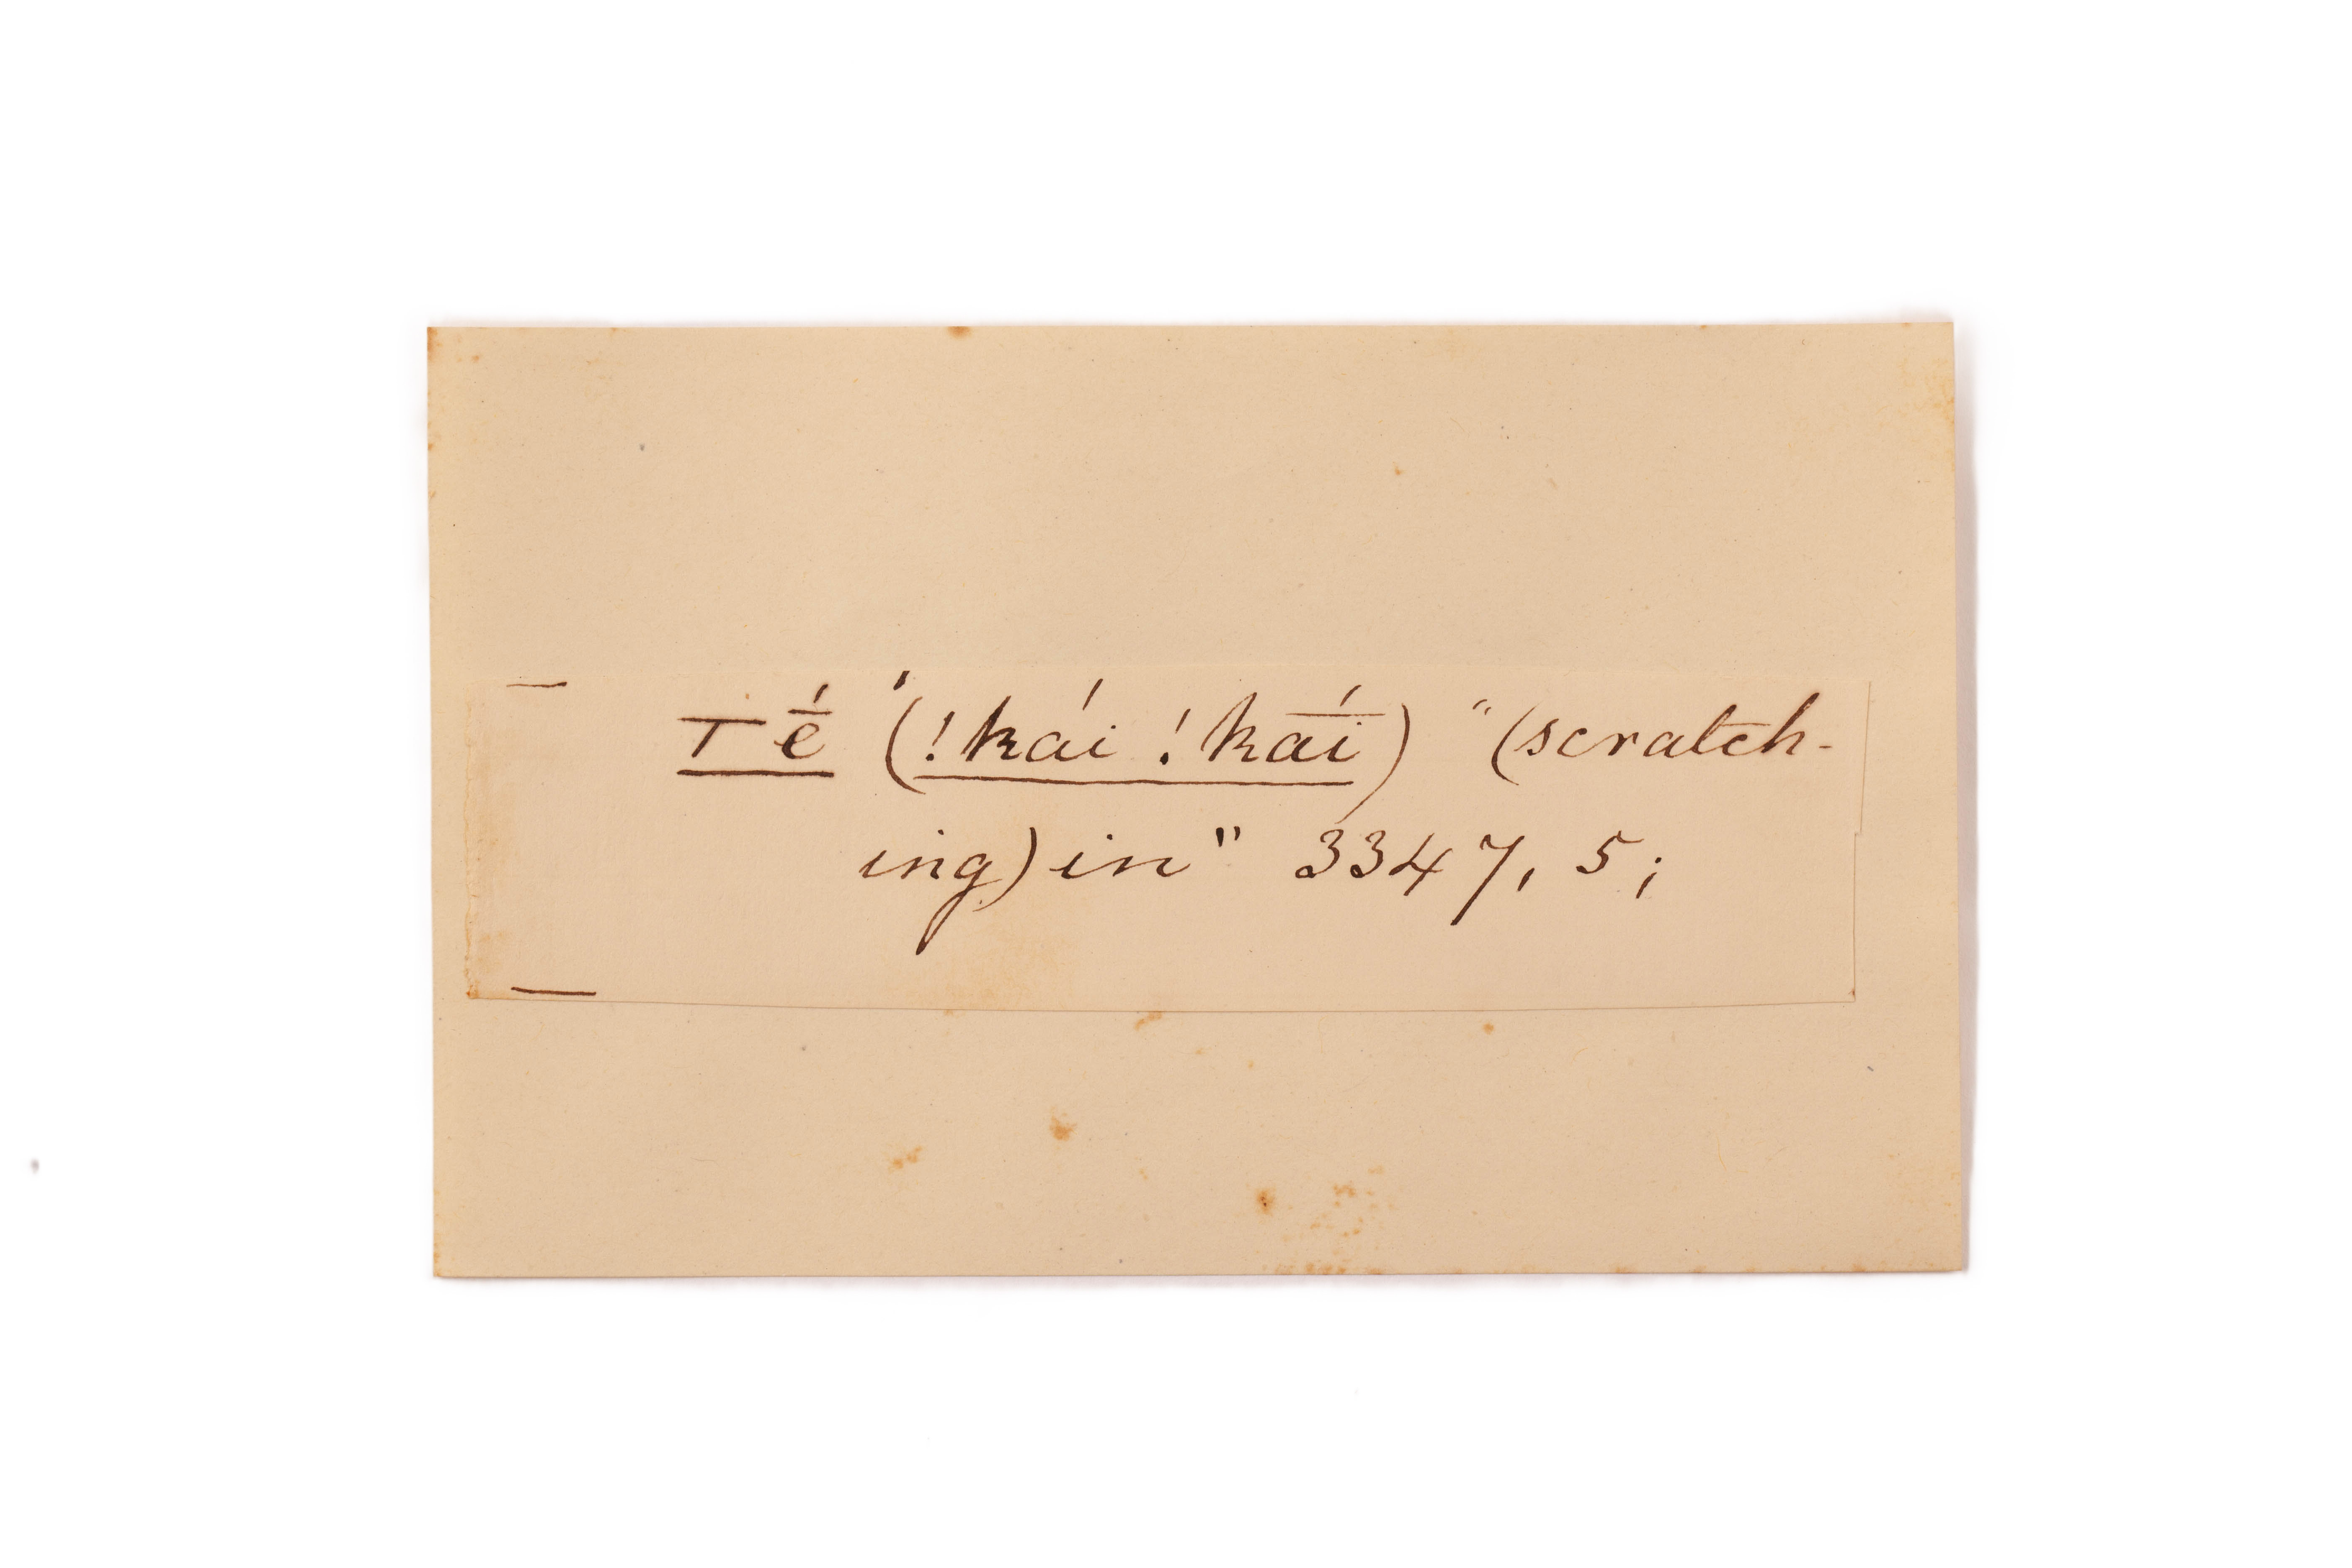 T ḗ (!kái !kā́i) "(scratch-
ing) in" 3347, 5;